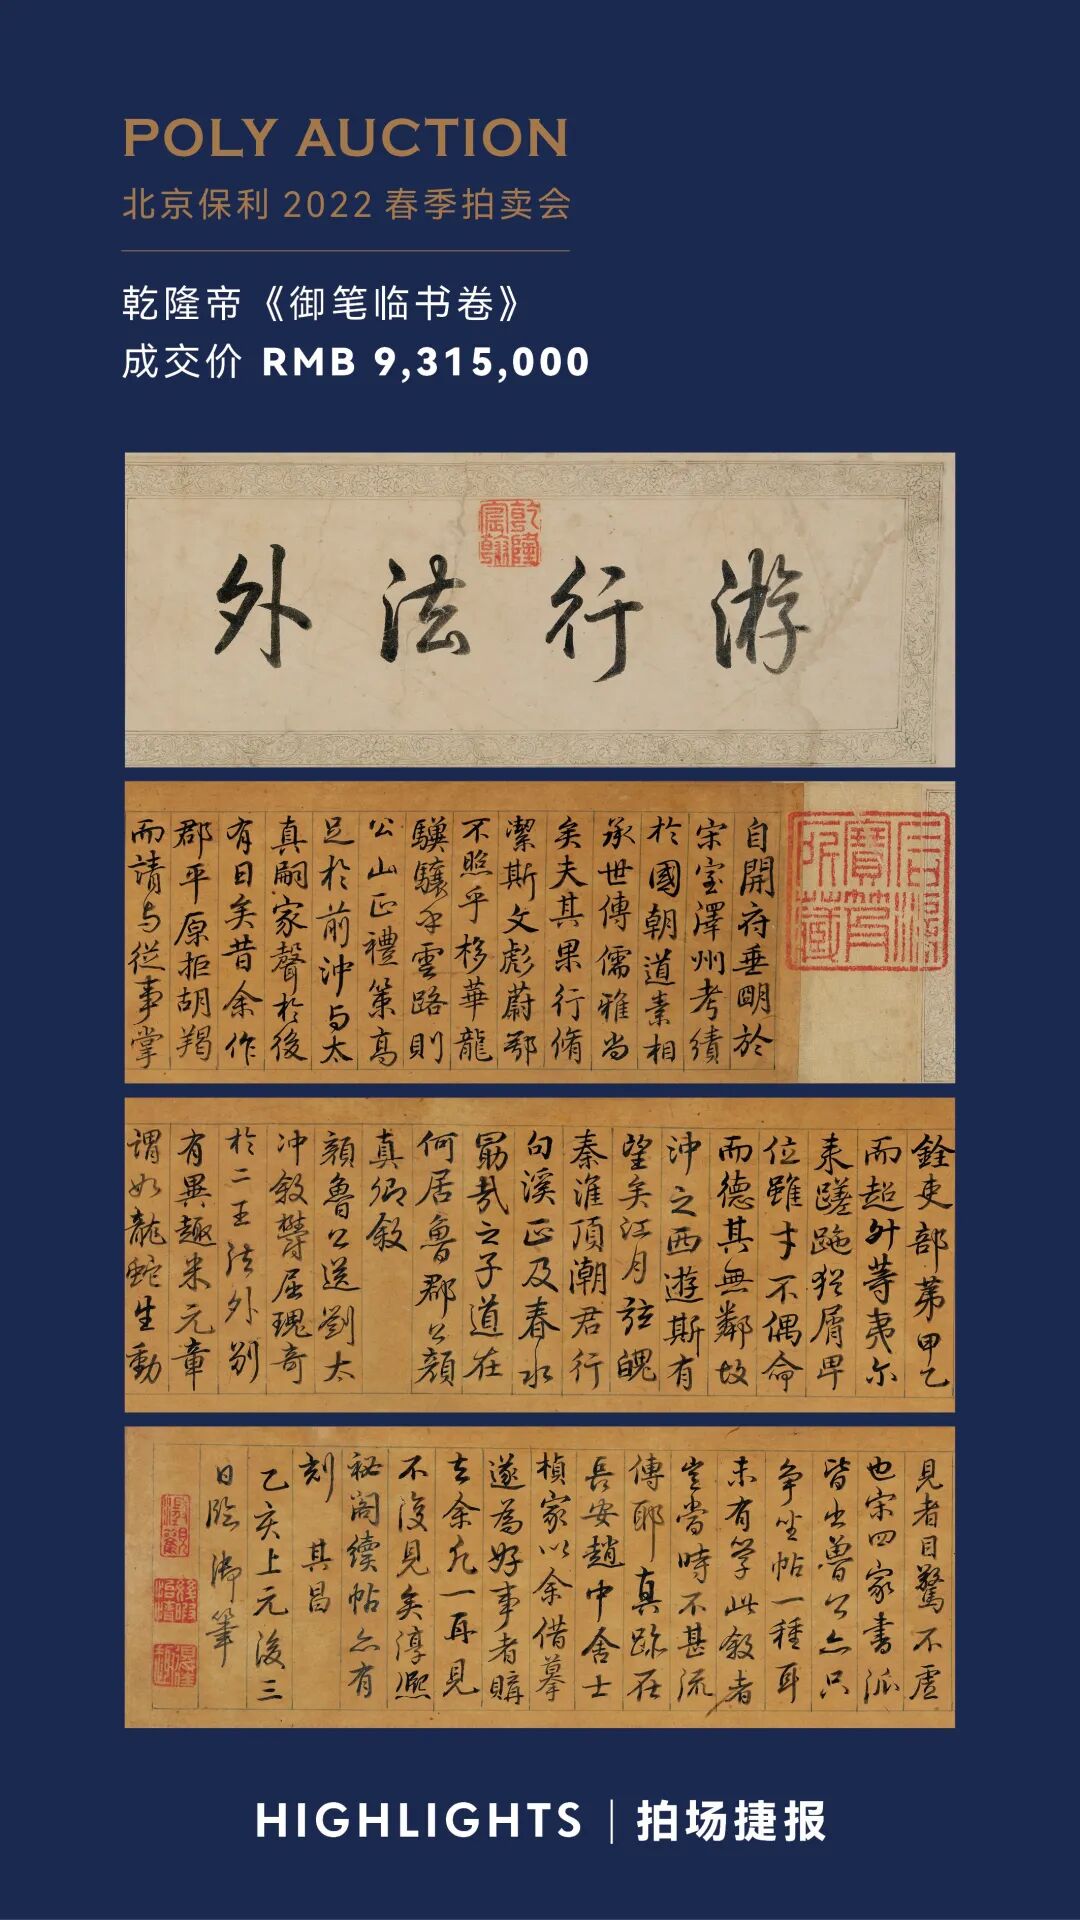 POLY AUCTION
北京保利 2022 春季拍卖会
乾隆帝《御笔临书卷》
成交价 RMB 9,315,000
乾隆宸翰
游行法外
石渠寶笈所藏
自開府垂明於
宋室澤州考績
於國朝道素相
承世傳儒雅尚
矣夫其果行脩
潔斯文彪蔚鄂
不照乎移華龍
驥驤乎雲路則
公山正禮策高
足於前沖與太
真嗣家聲於後
有日矣昔余作
郡平原拒胡羯
而請与從事掌
銓吏部第甲乙
而超升等夷尓
来蹉跎猶屑卑
位雖才不偶命
而德其無鄰故
沖之西遊斯有
望矣江月弦魄
秦淮頂潮君行
句溪正及春水
勗哉之子道在
何居魯郡公顏
真卿敘
顏魯公送劉太
沖敘鬱屈瑰奇
於二王法外別
有異趣米元章
謂如龍蛇生動
見者目驚不虛
也宋四家書派
皆出魯公亦只
爭坐帖一種耳
未有學此敘者
豈當時不甚流
傳耶真跡在
長安趙中舍士
楨家以余借摹
遂為好事者購
去余凡一再見
不復見矣淳熙
秘閣續帖亦有
刻 其昌
乙亥上元後三
日臨 御筆
HIGHLIGHTS | 拍场捷报